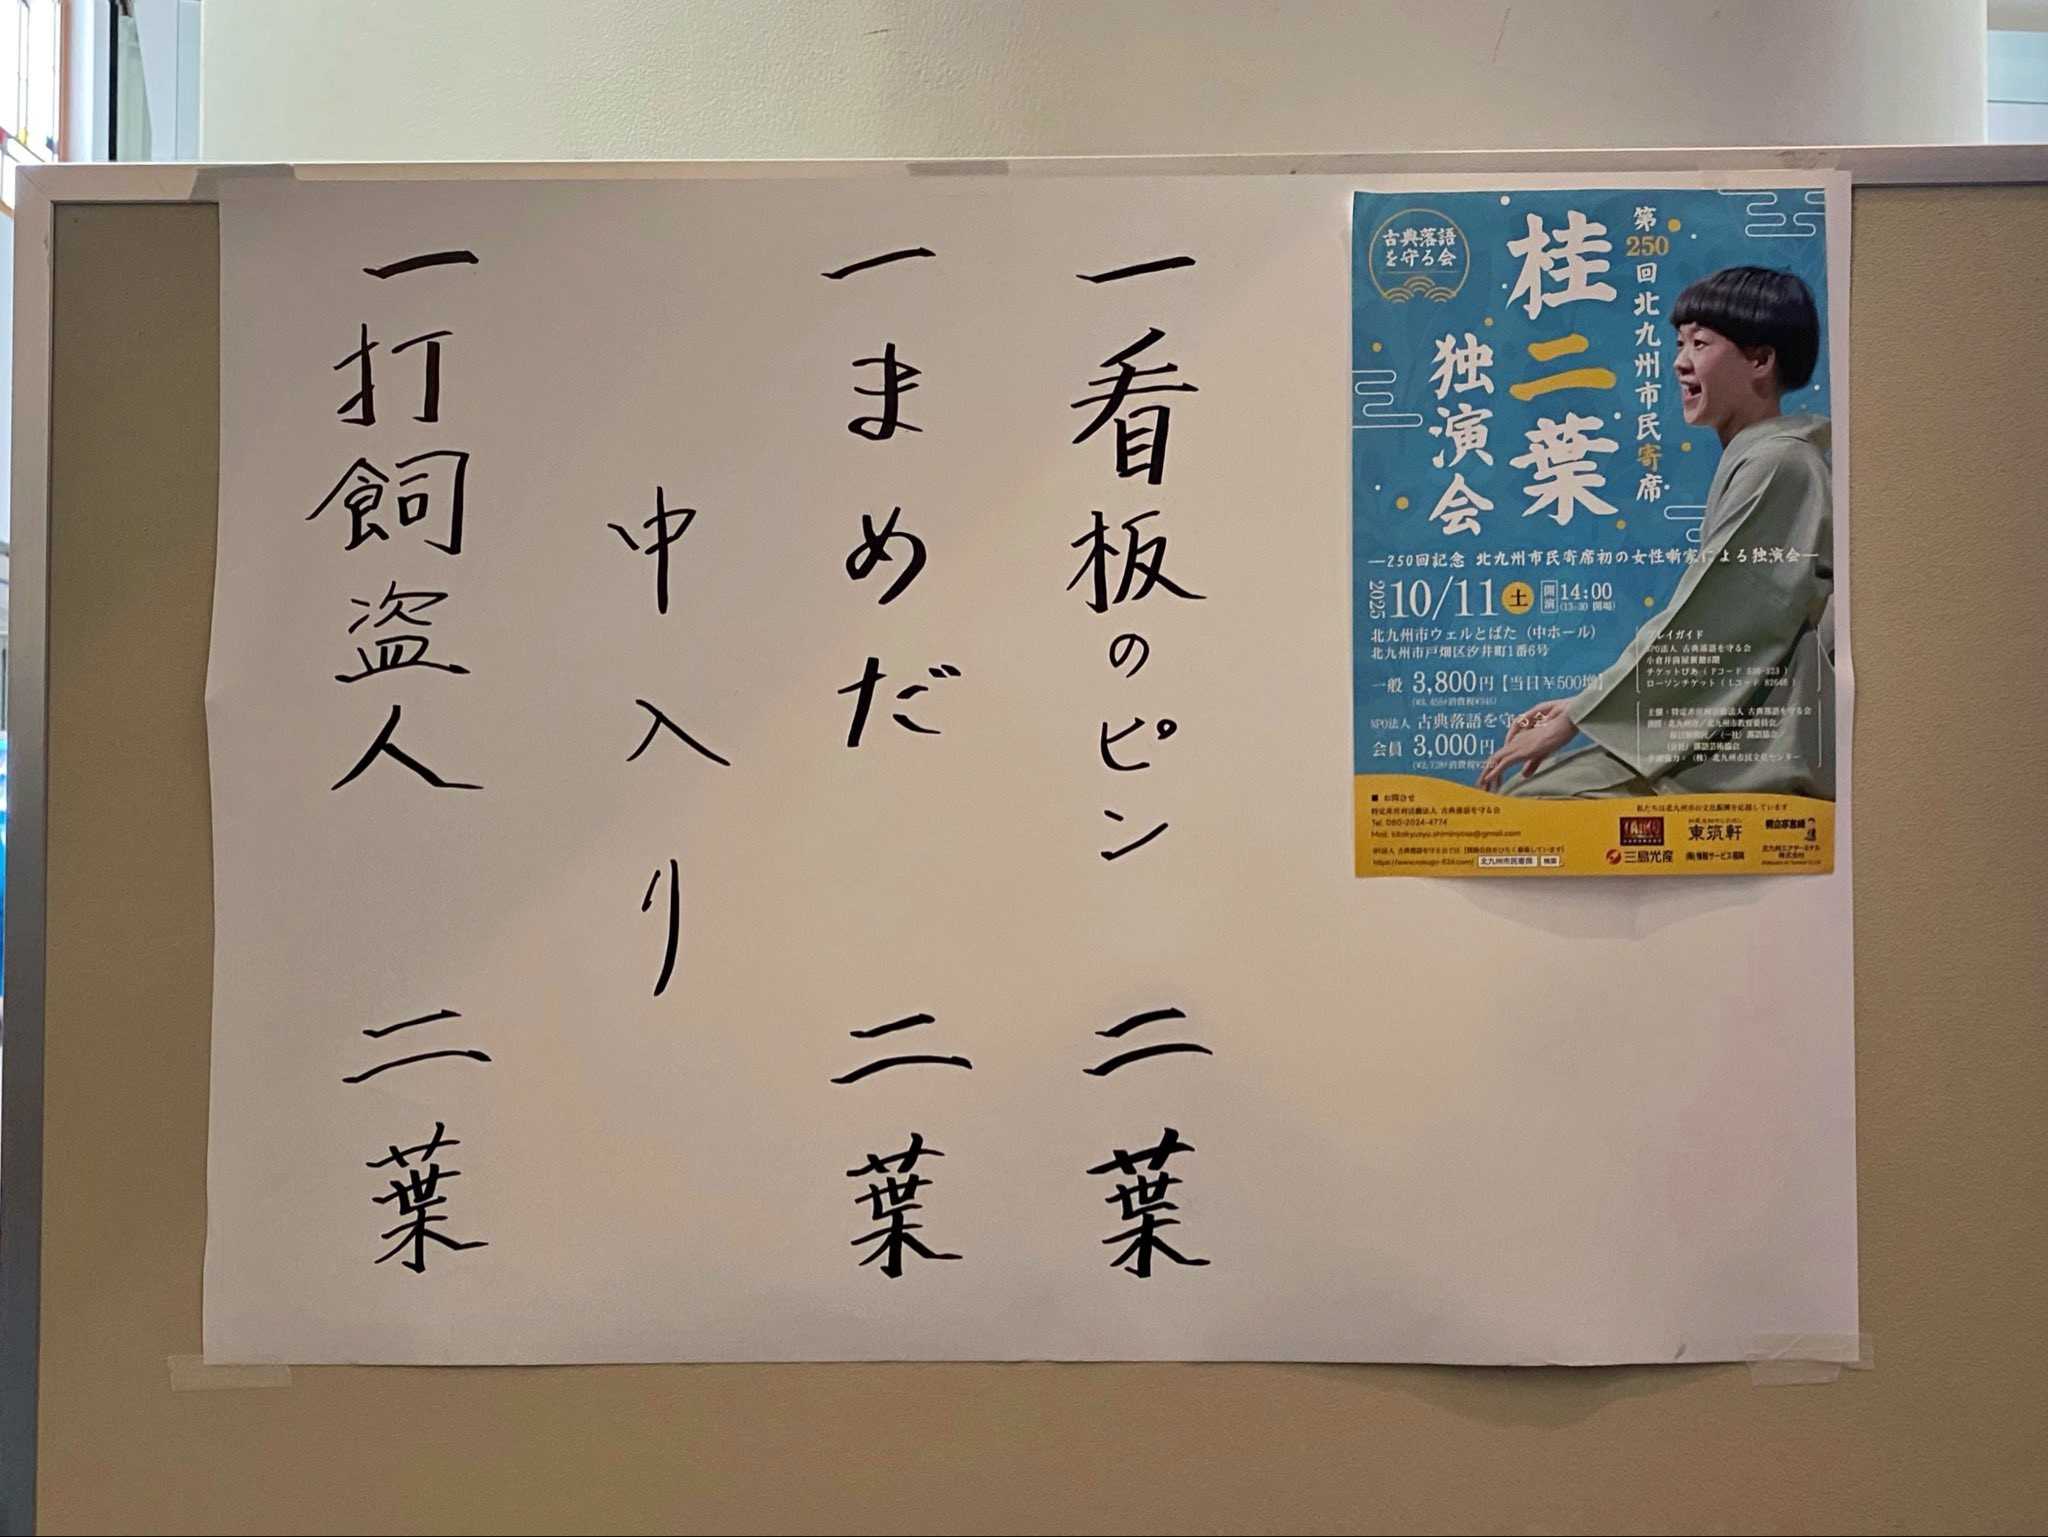 古典落語
を守る会
第250回北九州市民寄席
桂二葉
独演会
―250回記念 北九州市民寄席初の女性噺家による独演会―
2025 10/11 土 開演 14:00
(13:30 開場)
北九州市ウェルとばた(中ホール)
北九州市戸畑区汐井町1番6号
一般 3,800円【当日¥500増】
NPO法人 古典落語を守る会
会員 3,000円
プレイガイド
NPO法人 古典落語を守る会
チケットぴあ
ローソンチケット
主催:特定非営利活動法人 古典落語を守る会
■ お問合せ
特定非営利活動法人 古典落語を守る会
Tel. 080-2024-4774
私たちは北九州市の文化振興を応援しています
北九州市民寄席 検索
東筑軒
三島光産
北九州エアターミナル
株式会社
一 看板のピン 二葉
一 まめだ 二葉
中入り
一 打飼盗人 二葉